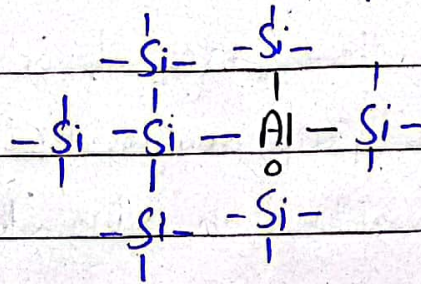 Si Si
Si Si Al Si
Si Si